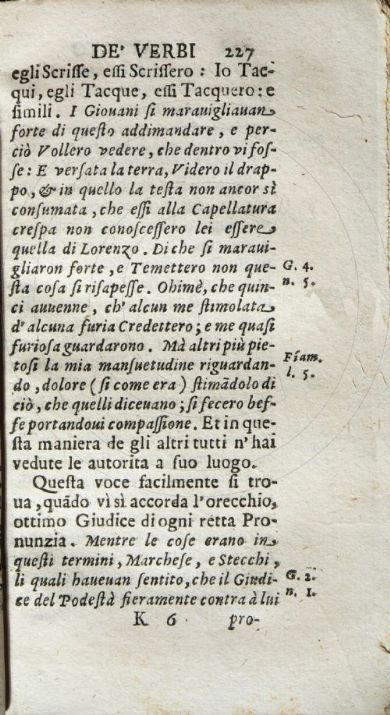 DE' VERBI 227
egli Scriſſe, eſſi Scriſſero: Io Tac-
qui, egli Tacque, eſſi Tacquero: e
ſimili. I Giovani ſi marauigliauan
forte di queſto addimandare, e per-
ciò Vollero vedere, che dentro vi foſ-
ſe: E verſata la terra, Videro il drap-
po, & in quello la teſta non ancor sì
conſumata, che eſſi alla Capellatura
creſpa non conoſceſſero lei eſſere
quella di Lorenzo. Di che ſi maraui-
gliaron forte, e Temettero non que- G. 4.
ſta coſa ſi riſapeſſe. Ohimè, che quin- n. 5.
ci auuenne, ch'alcun me ſtimolata
d'alcuna furia Credettero; e me quaſi
furioſa guardarono. Mà altri più pie-
toſi la mia manſuetudine riguardan- Fiam.
do, dolore (ſi come era) ſtimãdolo di l. 5.
ciò, che quelli diceuano; ſi fecero bef-
fe portandoui compaſſione. Et in que-
ſta maniera de gli altri tutti n'hai
vedute le autorita a ſuo luogo.
Queſta voce facilmente ſi tro-
ua, quãdo vi sì accorda l'orecchio,
ottimo Giudice di ogni retta Pro-
nunzia. Mentre le coſe erano in
queſti termini, Marcheſe, e Stecchi,
li quali haueuan ſentito, che il Giudi- G. 2.
ce del Podeſtà fieramente contra à lui n. 1.
K 6 pro-